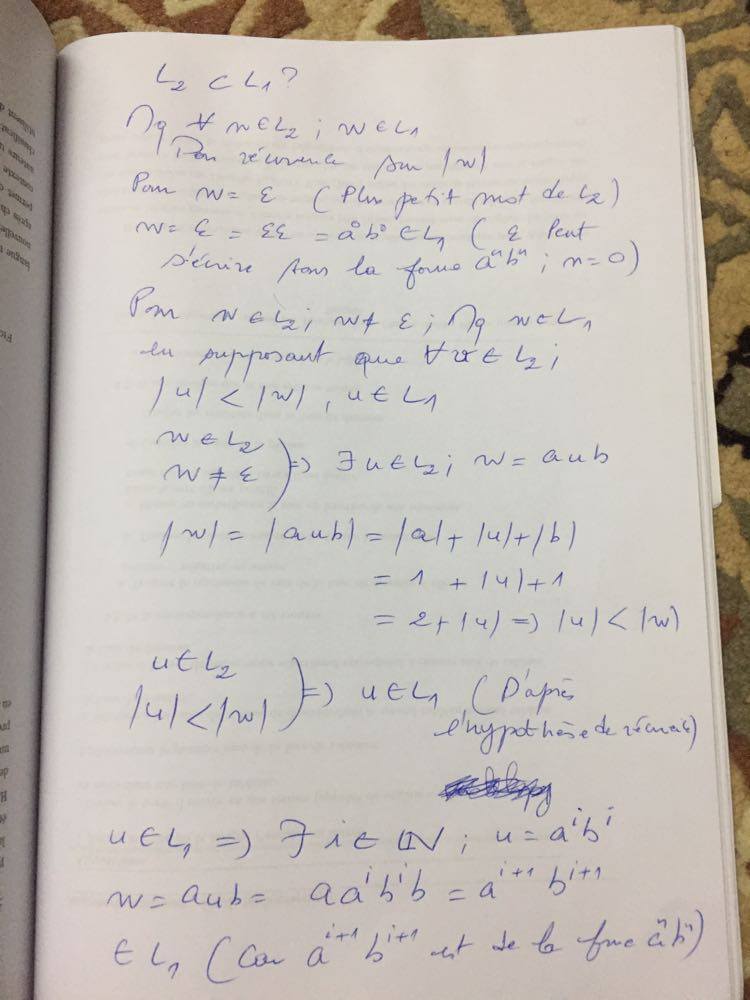 L₂ ⊂ L₁ ?
Mq ∀ w ∈ L₂ ; w ∈ L₁
Par récurrence sur |w|
Pour w = ε (Plus petit mot de L₂)
w = ε = εε = a⁰b⁰ ∈ L₁ (ε Peut
s'écrire sous la forme aⁿbⁿ ; n = 0)
Pour w ∈ L₂ ; w ≠ ε ; Mq w ∈ L₁
en supposant que ∀ u ∈ L₂ ;
|u| < |w| , u ∈ L₁
w ∈ L₂
w ≠ ε ) => ∃ u ∈ L₂ ; w = aub
|w| = |aub| = |a| + |u| + |b|
= 1 + |u| + 1
= 2 + |u| => |u| < |w|
u ∈ L₂
|u| < |w| ) => u ∈ L₁ (D'après
l'hypothèse de récurrence)
u ∈ L₁ => ∃ i ∈ ℕ ; u = aⁱbⁱ
w = aub = aaⁱbⁱb = aⁱ⁺¹ bⁱ⁺¹
∈ L₁ (Car aⁱ⁺¹ bⁱ⁺¹ est de la forme aⁿbⁿ)